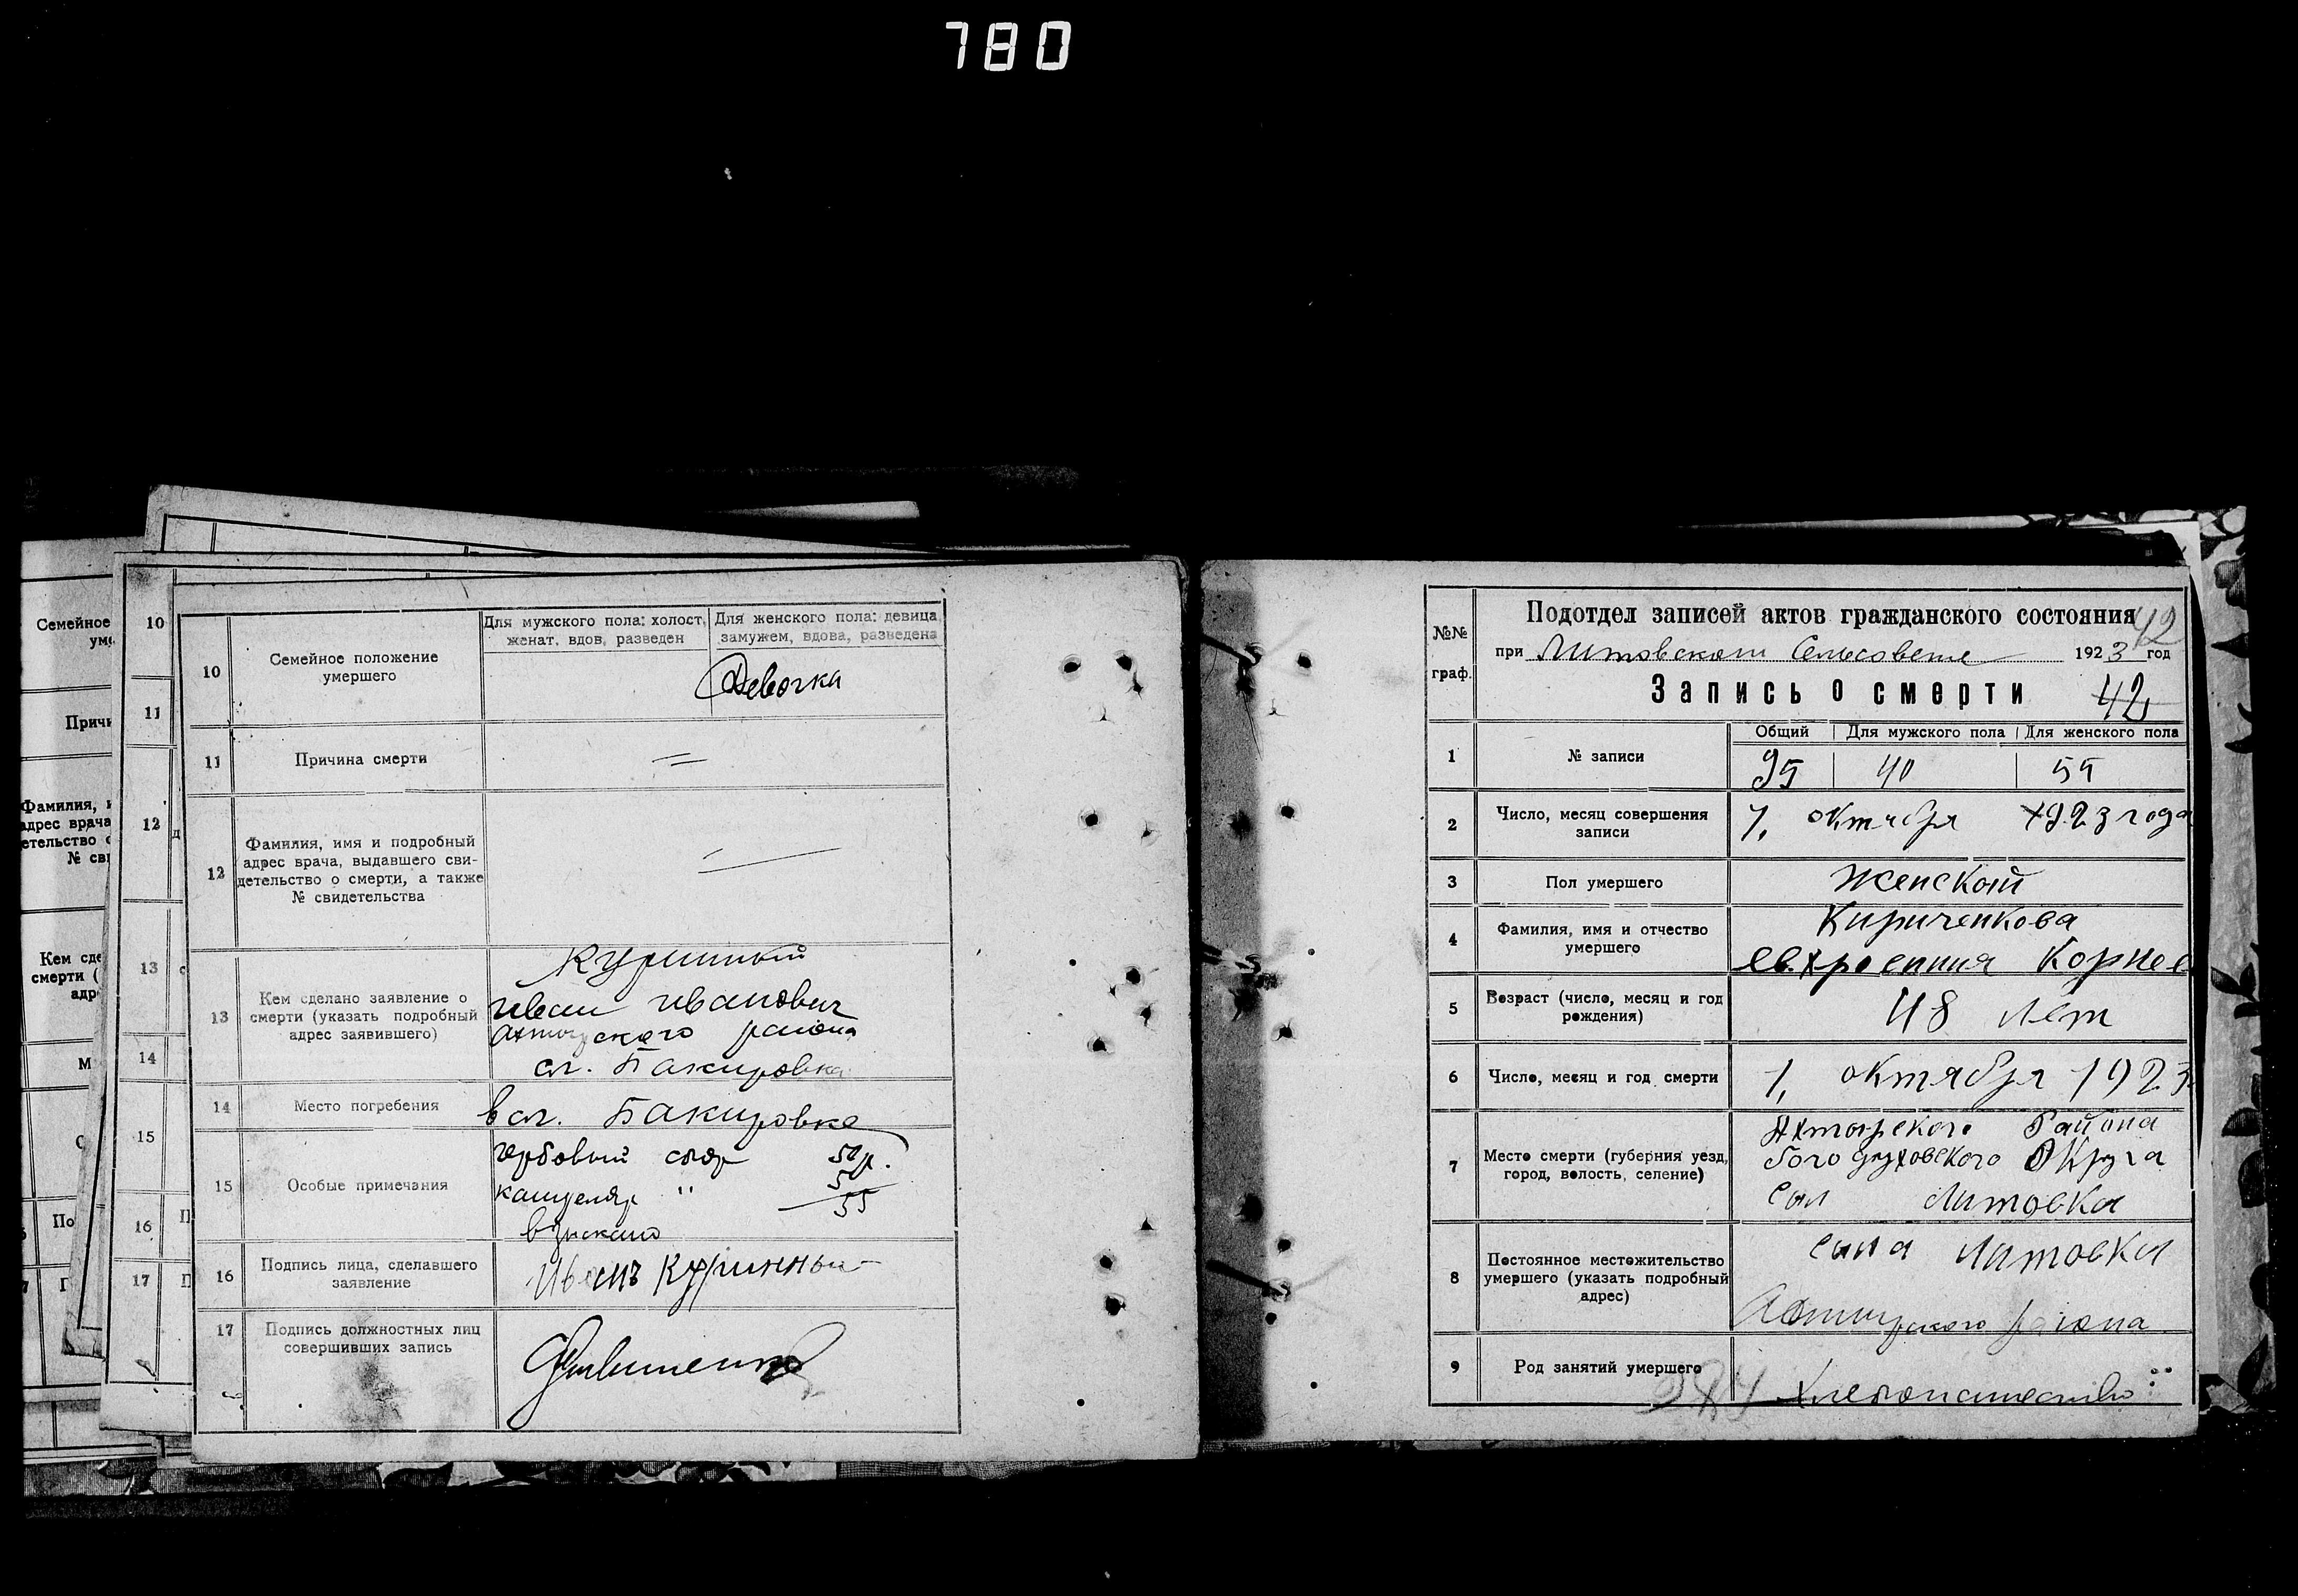 780
Семейное
ум
Причи
Фамилия, и
адрес врача
етельство о
№ св
Кем сде
смерти (
адр
М
По
10
11
12
13
14
15
16
17
10
Семейное положение
умершего
Для мужского пола: холост,
женат, вдов, разведен
Для женского пола: девица,
замужем, вдова, разведена
Девочка
11
Причина смерти
=
12
Фамилия, имя и подробный
адрес врача, выдавшего сви-
детельство о смерти, а также
№ свидетельства
13
Кем сделано заявление о
смерти (указать подробный
адрес заявившего)
Иван Иванович
Ахтырского района
сл. Бакировка
14
Место погребения
в сл. Бакировке
15
Особые примечания
гербовый сбор 50р.
канцеляр " 5
55
взыскано
16
Подпись лица, сделавшего
заявление
Иванъ Куринный
17
Подпись должностных лиц
совершивших запись
№№
граф.
Подотдел записей актов гражданского состояния
42
при Литовском Сельсовете 1923 год
Запись о смерти
42
1
№ записи
Общий
Для мужского пола
Для женского пола
95
40
55
2
Число, месяц совершения
записи
1, октября 1923 года
3
Пол умершего
Женской
4
Фамилия, имя и отчество
умершего
Кириченкова
Корнее
5
Возраст (число, месяц и год
рождения)
48 лет
6
Число, месяц и год смерти
1, октября 1923
7
Место смерти (губерния уезд,
город, волость, селение)
Ахтырского Района
Богодуховского Округа
сел Литовка
8
Постоянное местожительство
умершего (указать подробный
адрес)
села Литовка
Ахтырского района
9
Род занятий умершего
Хлебопашество